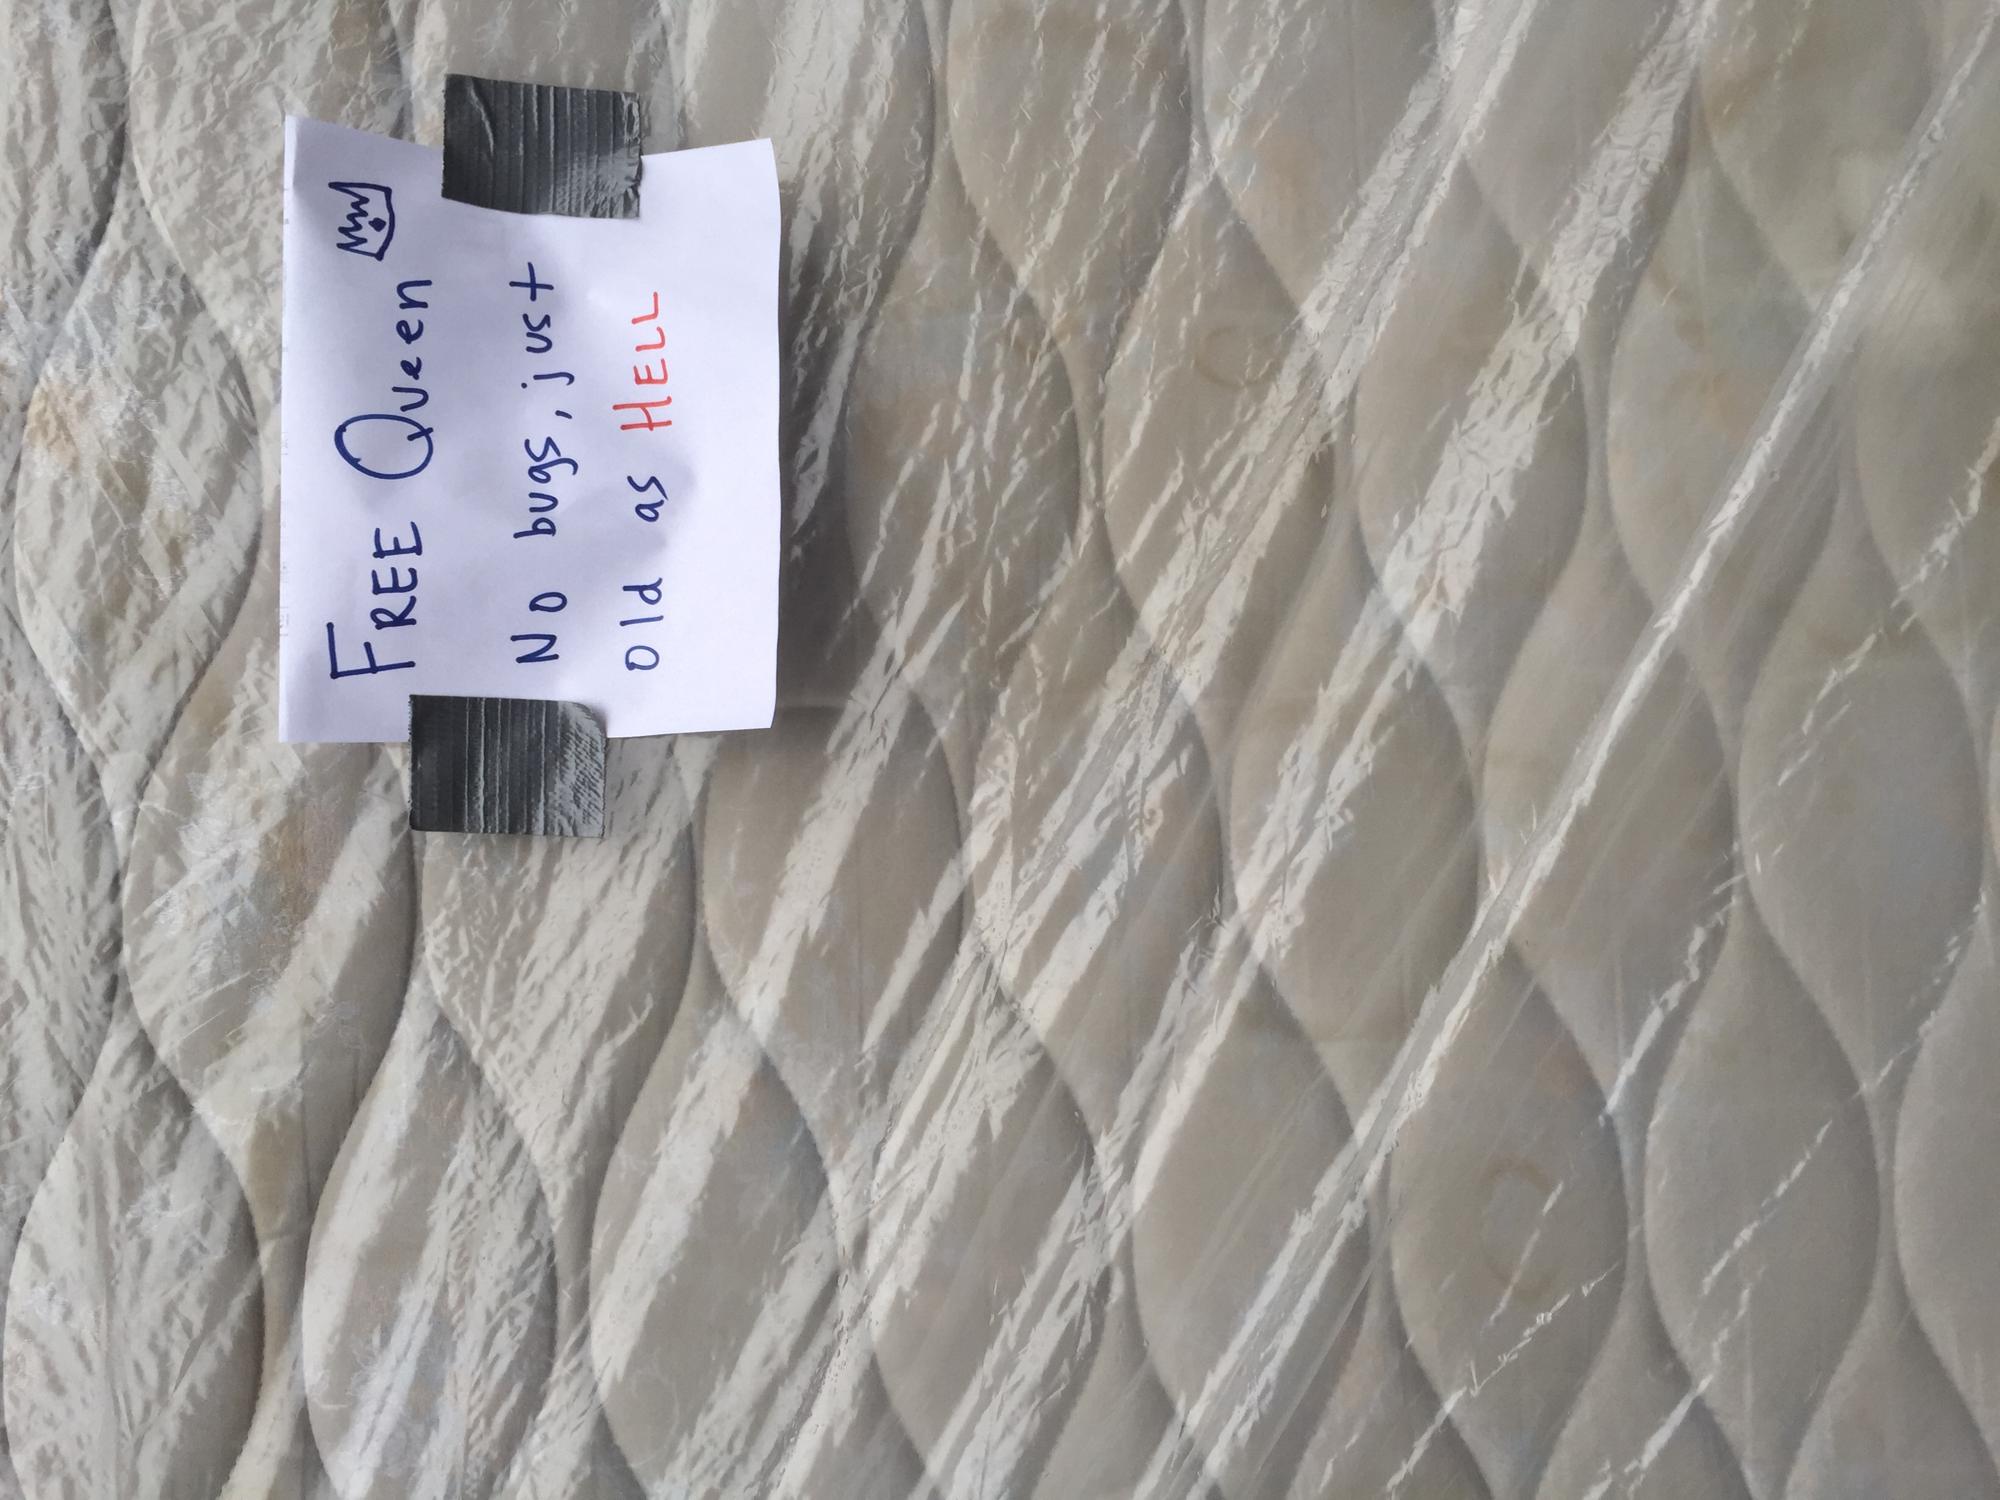 FREE Queen
No bugs, just
old as HELL